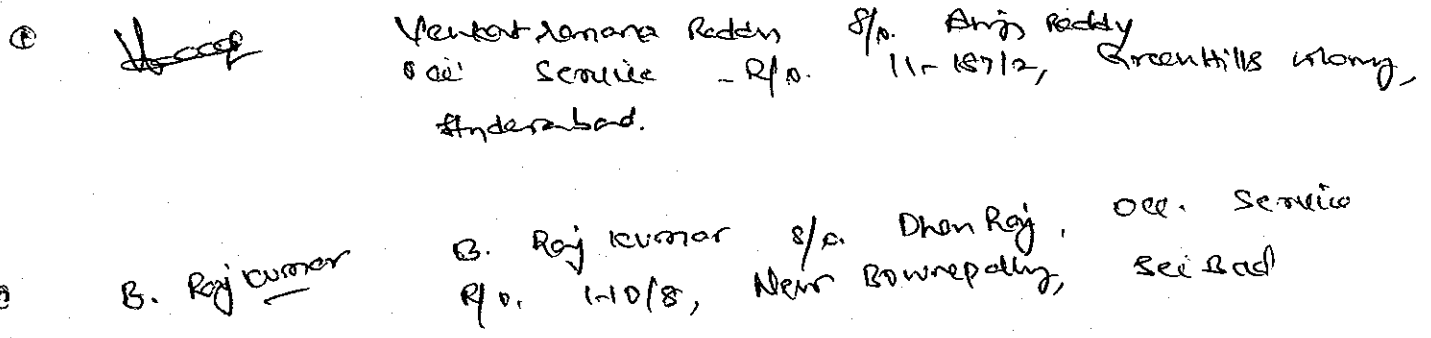 Venkat Ramana Reddy S/o. Anji Reddy
Occ: Service - R/o. 11-187/2, Green Hills colony,
Hyderabad.
B. Raj Kumar
B. Raj Kumar S/o. Dhan Raj, Occ. Service
R/o. 1-10/8, New Bowenpally, Sec'Bad